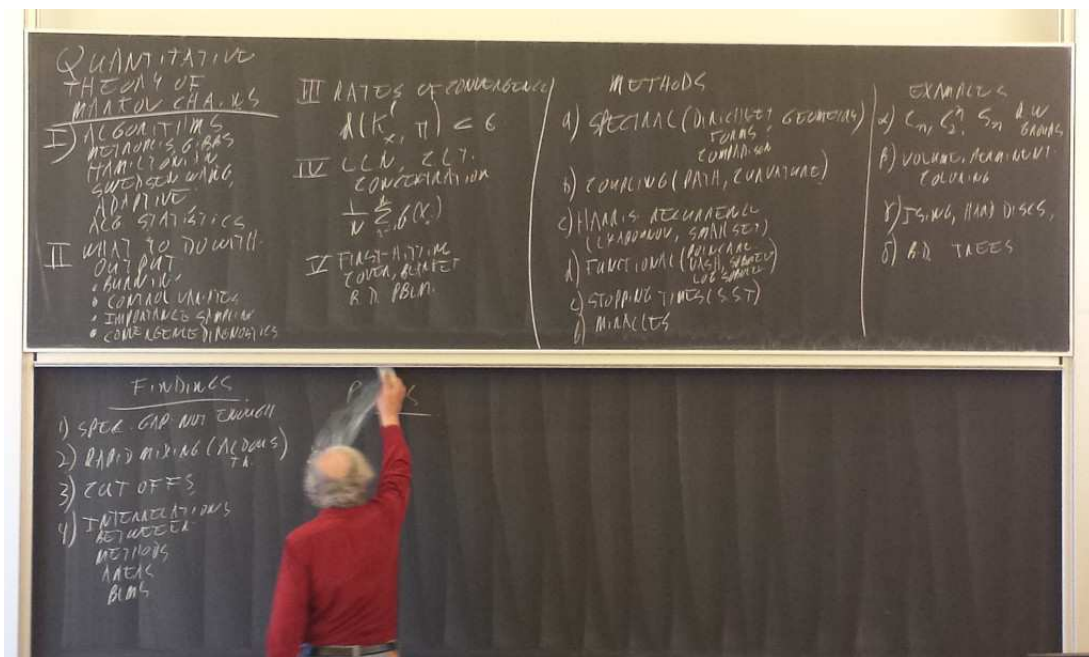 QUANTITATIVE
THEORY OF
MARKOV CHAINS
I) ALGORITHMS
METROPOLIS, GIBBS
HAMILTONIAN
SWENDSEN WANG,
ADAPTIVE
ALG STATISTICS
II WHAT TO DO WITH
OUTPUT
• BURN IN
• CONTROL VARIATES
• IMPORTANCE SAMPLING
• CONVERGENCE DIAGNOSTICS
III RATES OF CONVERGENCE
d(K_x^l, π) < ε
IV LLN, CLT,
CONCENTRATION
V FIRST HITTING
COVER, BLANKET
B.D. PBLM.
METHODS
a) SPECTRAL (DIRICHLET GEOMETRY)
FORMS,
COMPARISON
b) COUPLING (PATH, CURVATURE)
c) HARRIS RECURRENCE
(LYAPUNOV, SMALL SET)
d) FUNCTIONAL (POINCARE
NASH, SOBOLEV
LOG SOBOLEV
e) STOPPING TIMES (SST)
f) MIRACLES
EXAMPLES
α) C_n, C_2^n, S_n RW
GROUPS
β) VOLUME, PERMANENT.
COLORING
γ) ISING, HARD DISCS,
δ) B.D. TREES
FINDINGS
1) SPEC. GAP NOT ENOUGH
2) RAPID MIXING (ALDOUS)
3) CUT OFFS
4) INTERRELATIONS
BETWEEN
METHODS
AREAS